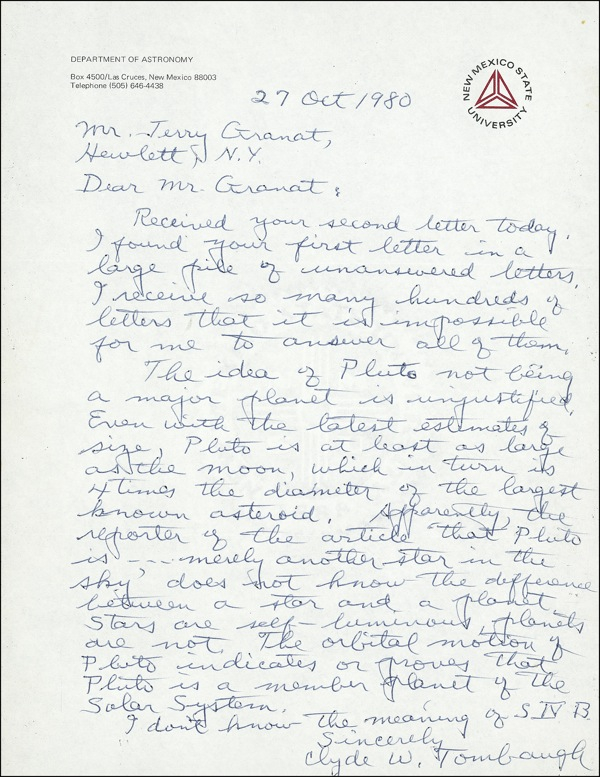 DEPARTMENT OF ASTRONOMY
Box 4500/Las Cruces, New Mexico 88003
Telephone (505) 646-4438
NEW MEXICO STATE UNIVERSITY
27 Oct 1980
Mr. Jerry Granat,
Hewlett, N.Y.
Dear Mr. Granat:
Received your second letter today.
I found your first letter in a
large pile of unanswered letters.
I receive so many hundreds of
letters that it is impossible
for me to answer all of them.
The idea of Pluto not being
a major planet is unjustified.
Even with the latest estimates of
size, Pluto is at least as large
as the moon, which in turn is
4 times the diameter of the largest
known asteroid. Apparently, the
reporter of the article "that Pluto
is --- merely another star in the
sky" does not know the difference
between a star and a planet.
Stars are self-luminous, planets
are not. The orbital motion of
Pluto indicates or proves that
Pluto is a member planet of the
Solar System.
I don't know the meaning of S IV B.
Sincerely
Clyde W. Tombaugh